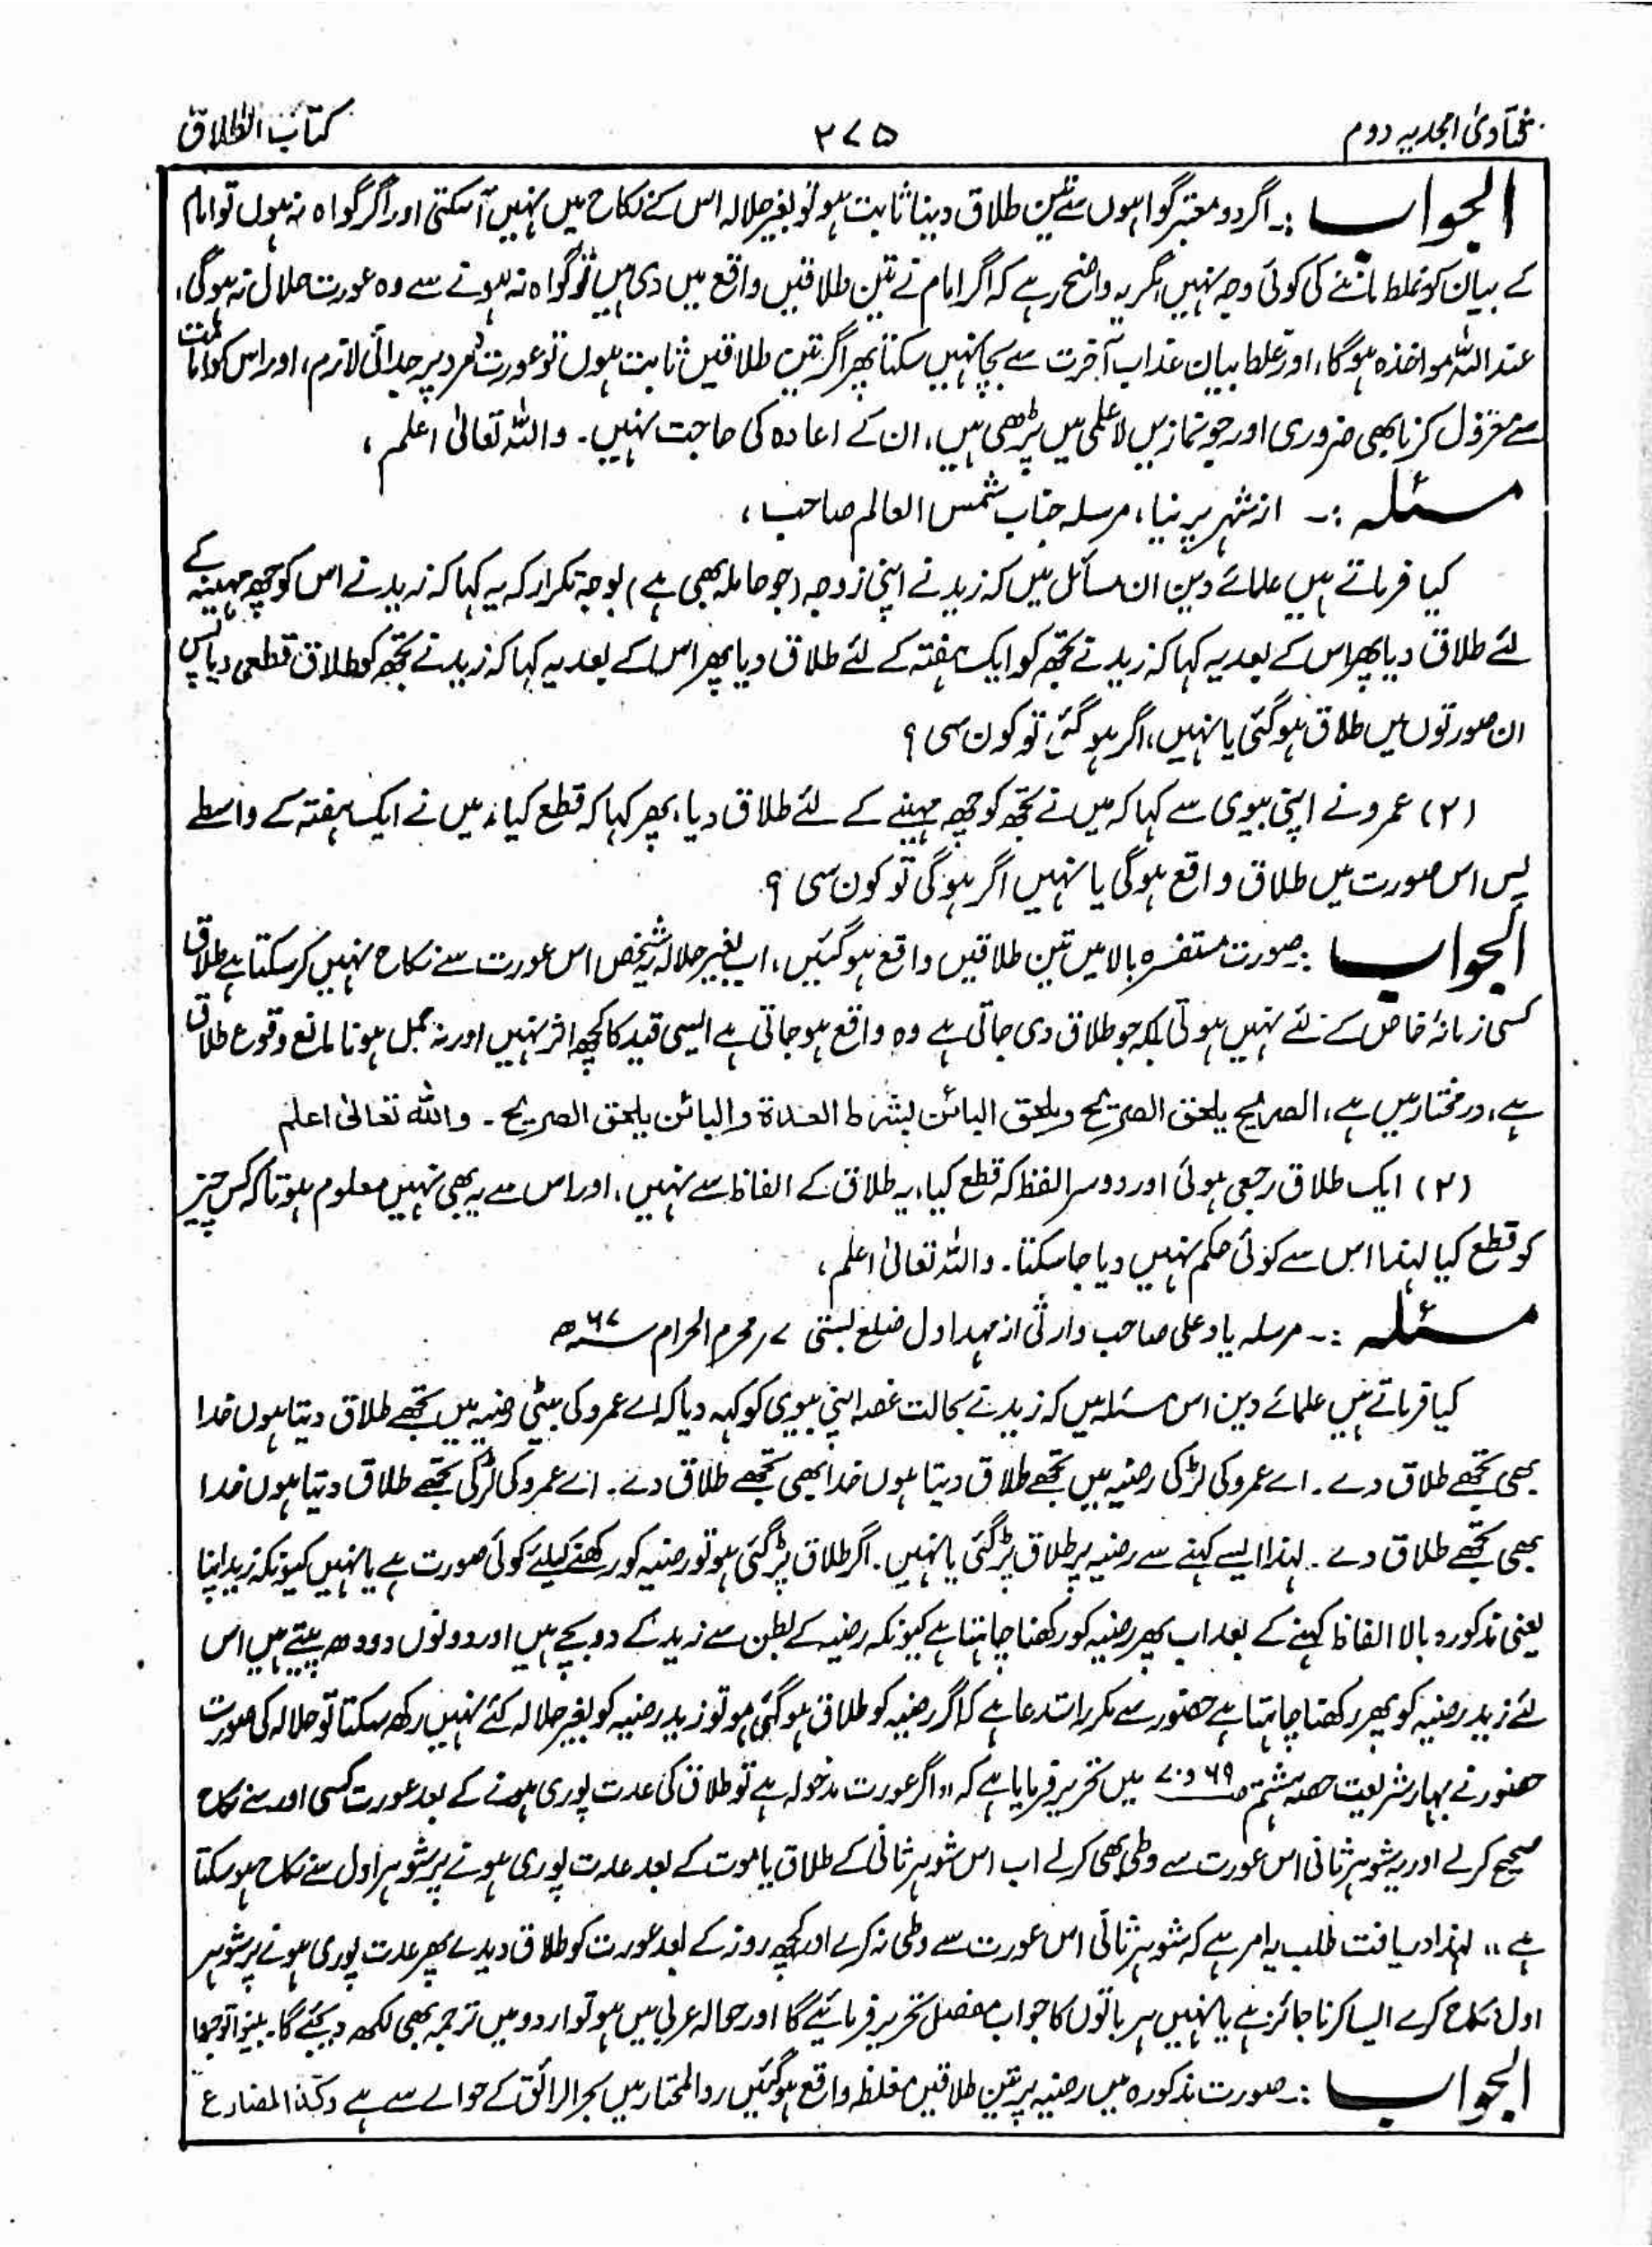 فتاویٰ امجدیہ دوم ۲۷۵ کتاب الطلاق
الجواب :۔ اگر دو معتبر گواہوں سے تین طلاق دینا ثابت ہو تو بغیر حلالہ اس کے نکاح میں نہیں آسکتی اور اگر گواہ نہ ہوں تو امام
کے بیان کو غلط ماننے کی کوئی وجہ نہیں، مگر یہ واضح رہے کہ اگر امام نے تین طلاقیں واقع میں دی ہیں تو گواہ نہ ہونے سے وہ عورت حلال نہ ہوگی،
عند اللہ مواخذہ ہوگا، اور غلط بیان عذاب آخرت سے بچا نہیں سکتا پھر اگر تین طلاقیں ثابت ہوں تو عورت مرد پر جدائی لازم، اور اس کو امامت
سے معزول کرنا بھی ضروری اور جو نمازیں لاعلمی میں پڑھی ہیں، ان کے اعادہ کی حاجت نہیں۔ واللہ تعالیٰ اعلم،
مسئلہ :۔ از شہر پرنیا، مرسلہ جناب شمس العالم صاحب،
کیا فرماتے ہیں علمائے دین ان مسائل میں کہ زید نے اپنی زوجہ (جو حاملہ بھی ہے) بوجہ تکرار کہ یہ کہا کہ زید نے اس کو چھ مہینہ کے
لئے طلاق دیا پھر اس کے بعد یہ کہا کہ زید نے تجھ کو ایک ہفتہ کے لئے طلاق دیا پھر اس کے بعد یہ کہا کہ زید نے تجھ کو طلاق قطعی دیا پس
ان صورتوں میں طلاق ہوگئی یا نہیں، اگر ہوگئی تو کون سی ؟
(۲) عمرو نے اپنی بیوی سے کہا کہ میں نے تجھ کو چھ مہینے کے لئے طلاق دیا، پھر کہا کہ قطع کیا، میں نے ایک ہفتہ کے واسطے
پس اس صورت میں طلاق واقع ہوگی یا نہیں اگر ہوگی تو کون سی ؟
الجواب :۔ صورت مستفسرہ بالا میں تین طلاقیں واقع ہوگئیں، اب بغیر حلالہ یہ شخص اس عورت سے نکاح نہیں کرسکتا ہے طلاق
کسی زمانۂ خاص کے لئے نہیں ہوتی بلکہ جو طلاق دی جاتی ہے وہ واقع ہوجاتی ہے ایسی قید کا کچھ اثر نہیں اور نہ حمل ہونا مانع وقوع طلاق
ہے، درمختار میں ہے، الصریح یلحق الصریح ویلحق البائن بشرط العدة والبائن یلحق الصریح۔ واللہ تعالیٰ اعلم
(۲) ایک طلاق رجعی ہوئی اور دوسرا لفظ کہ قطع کیا، یہ طلاق کے الفاظ سے نہیں، اور اس سے یہ بھی نہیں معلوم ہوتا کہ کس چیز
کو قطع کیا لہٰذا اس سے کوئی حکم نہیں دیا جاسکتا۔ واللہ تعالیٰ اعلم،
مسئلہ :۔ مرسلہ یاد علی صاحب وارثی از مہداول ضلع بستی ۷ر محرم الحرام ۶۷ھ
کیا فرماتے ہیں علمائے دین اس مسئلہ میں کہ زید نے بحالت غصہ اپنی بیوی کو کہہ دیا کہ اے عمرو کی بیٹی رضیہ میں تجھے طلاق دیتا ہوں خدا
بھی تجھے طلاق دے۔ اے عمرو کی لڑکی رضیہ میں تجھے طلاق دیتا ہوں خدا بھی تجھے طلاق دے۔ اے عمرو کی لڑکی تجھے طلاق دیتا ہوں خدا
بھی تجھے طلاق دے۔ لہٰذا ایسے کہنے سے رضیہ پر طلاق پڑگئی یا نہیں۔ اگر طلاق پڑگئی ہو تو رضیہ کو رکھنے کیلئے کوئی صورت ہے یا نہیں کیونکہ زید اپنا
یعنی مذکورہ بالا الفاظ کہنے کے بعد اب پھر رضیہ کو رکھنا چاہتا ہے کیونکہ رضیہ کے بطن سے زید کے دو بچے ہیں اور دونوں دودھ پیتے ہیں اس
لئے زید رضیہ کو پھر رکھنا چاہتا ہے حضور سے مکرر استدعا ہے کہ اگر رضیہ کو طلاق ہوگئی ہو تو زید رضیہ کو بغیر حلالہ کئے نہیں رکھ سکتا تو حلالہ کی صورت
حضور نے بہار شریعت حصہ ہشتم ص ۶۹ و ۷۰ میں تحریر فرمایا ہے کہ ،،اگر عورت مدخولہ ہے تو طلاق کی عدت پوری ہونے کے بعد عورت کسی اور سے نکاح
صحیح کرلے اور یہ شوہر ثانی اس عورت سے وطی بھی کرلے اب اس شوہر ثانی کے طلاق یا موت کے بعد عدت پوری ہونے پر شوہر اول سے نکاح ہوسکتا
ہے،، لہٰذا دریافت طلب یہ امر ہے کہ شوہر ثانی اس عورت سے وطی نہ کرے اور کچھ روز کے بعد عورت کو طلاق دیدے پھر عدت پوری ہونے پر شوہر
اول نکاح کرے ایسا کرنا جائز ہے یا نہیں ہر باتوں کا جواب مفصل تحریر فرمائیے گا اور حوالہ عربی میں ہو تو اردو میں ترجمہ بھی لکھ دیجئے گا۔ بینوا توجروا
الجواب :۔ صورت مذکورہ میں رضیہ پر تین طلاقیں مغلظہ واقع ہوگئیں ردالمحتار میں بحرالرائق کے حوالے سے ہے وکذا المضارع